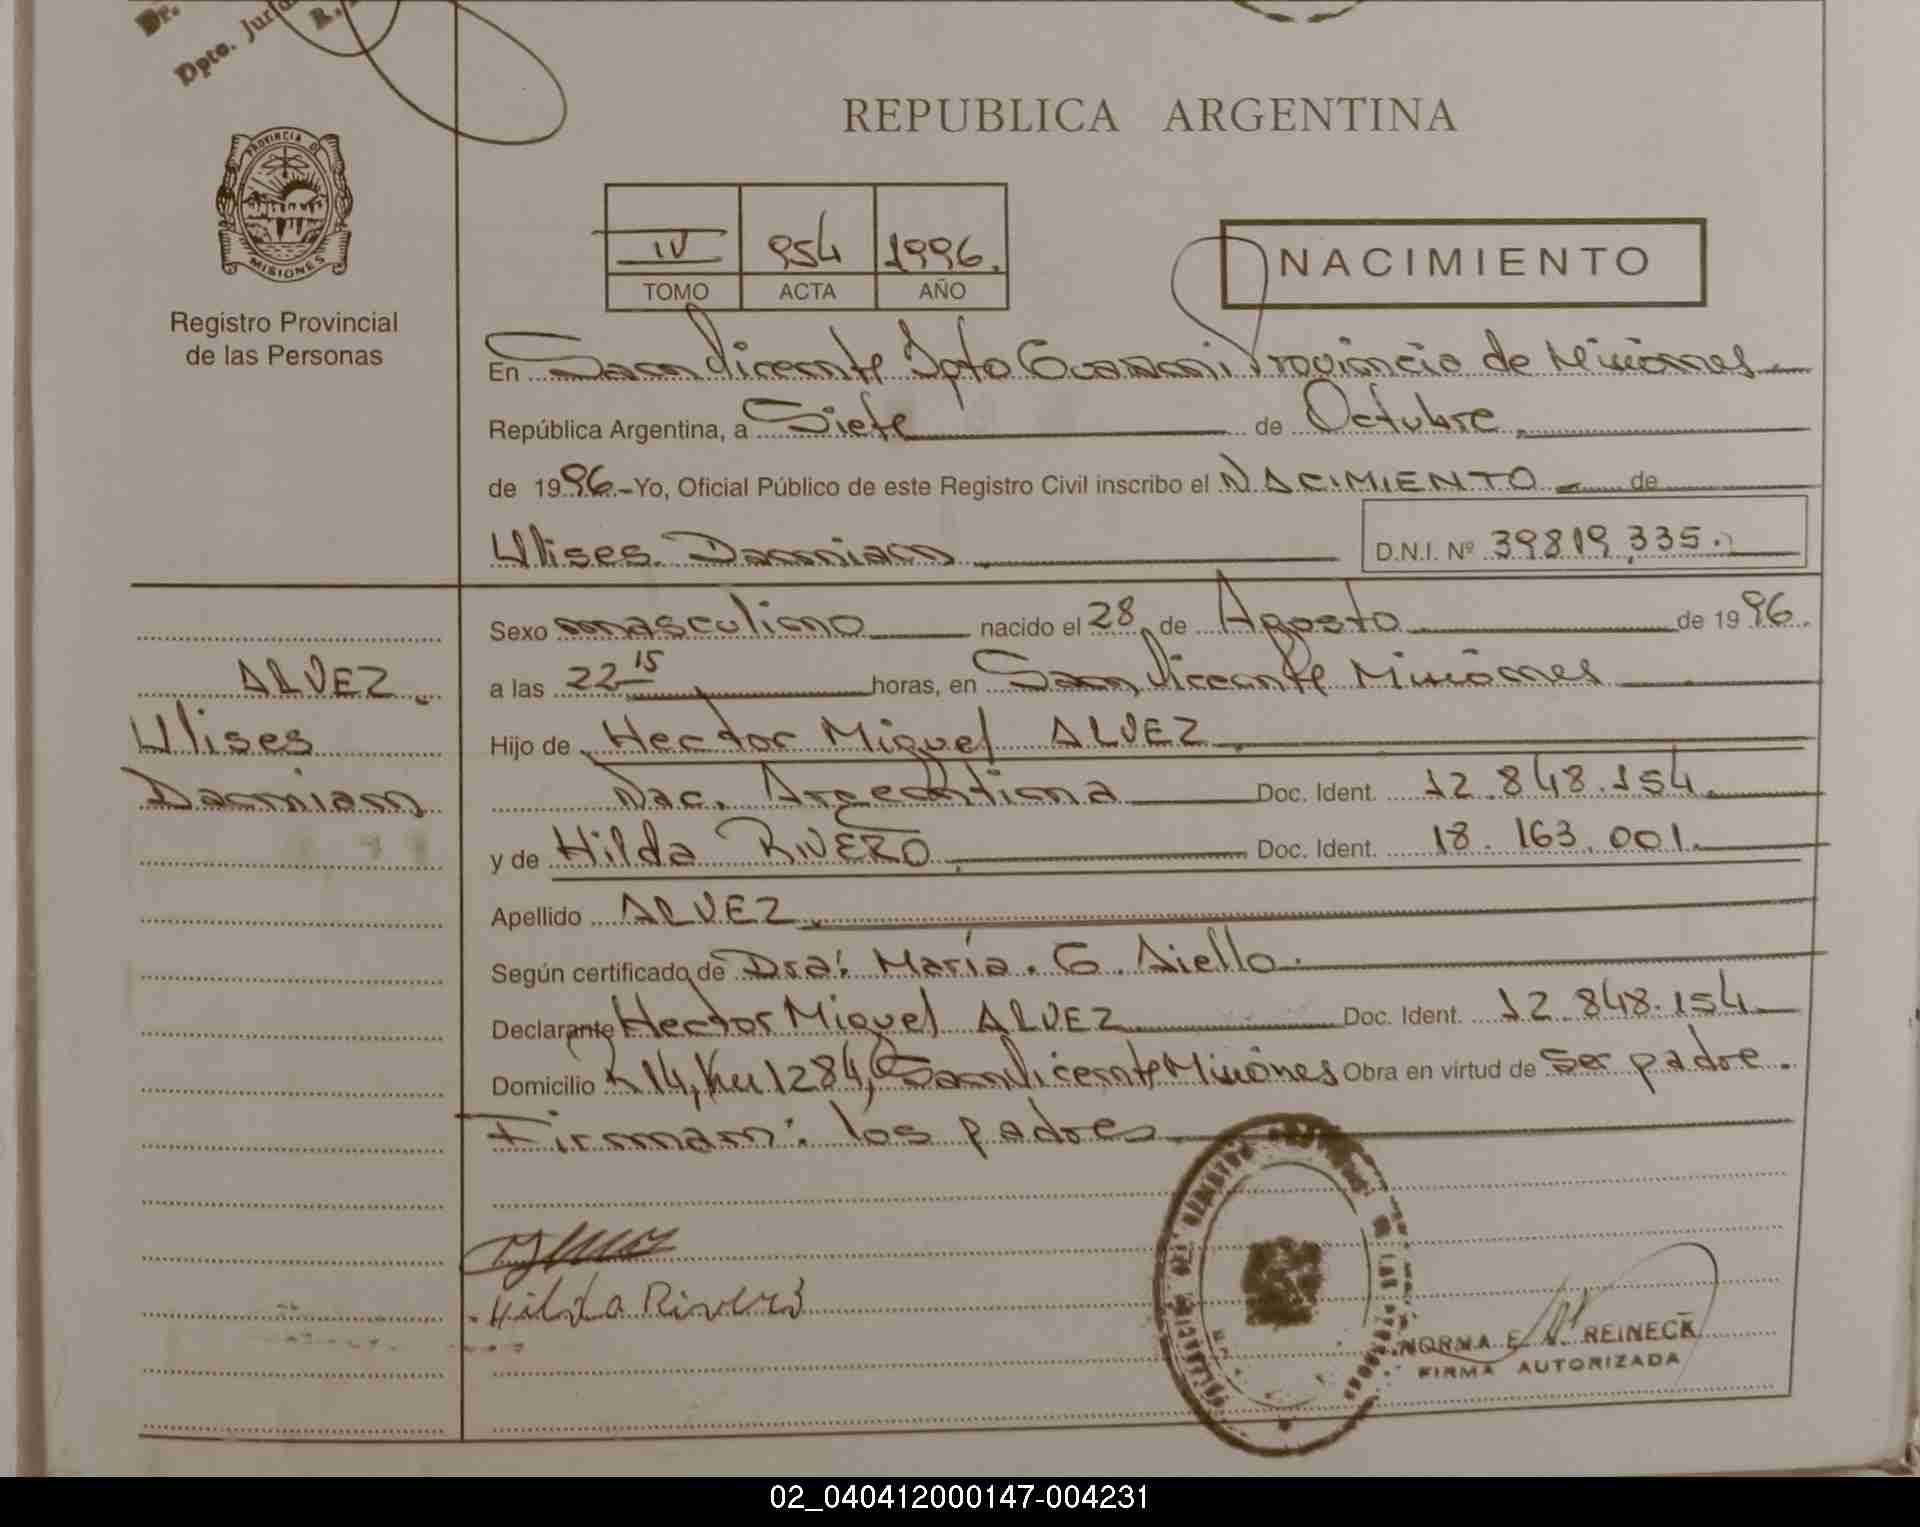 Dr.
Dpto. Jur
REPUBLICA ARGENTINA
PROVINCIA DE
MISIONES
Registro Provincial
de las Personas
IV 954 1996.
TOMO ACTA AÑO
NACIMIENTO
En San Vicente Dpto Guarani Provincia de Misiones
República Argentina, a Siete de Octubre
de 1996.- Yo, Oficial Público de este Registro Civil inscribo el NACIMIENTO de
Ulises Damian D.N.I. Nº 39819,335.
Sexo masculino nacido el 28 de Agosto de 1996.
ALVEZ
a las 22 15 horas, en San Vicente Misiones
Ulises
Hijo de Hector Miguel ALVEZ
Damian
Nac. Argentina Doc. Ident. 12.848.154
y de Hilda RIVERO Doc. Ident. 18.163.001.
Apellido ALVEZ
Según certificado de Dra: María. G. Aiello.
Declarante Hector Miguel ALVEZ Doc. Ident. 12.848.154
Domicilio R 14, Km 1284, San Vicente Misiones Obra en virtud de ser padre.
Firman: los padres
Hilda Rivero
NORMA E REINECK
FIRMA AUTORIZADA
02_040412000147-004231